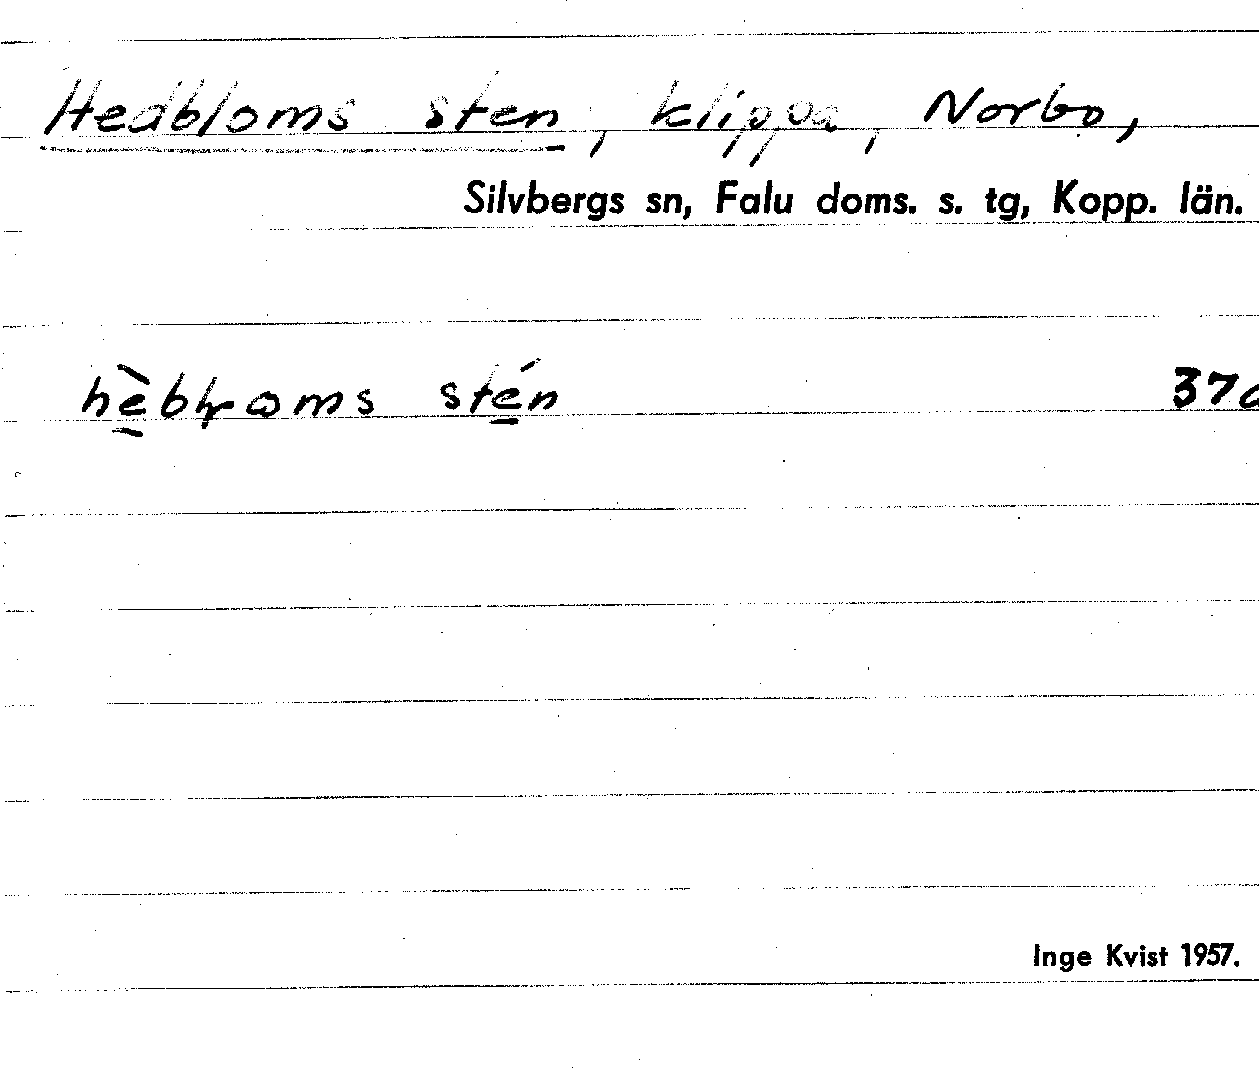 Hedbloms sten, klippa, Norbo,
Silvbergs sn, Falu doms. s. tg, Kopp. län.
stén 37
Inge Kvist 1957.